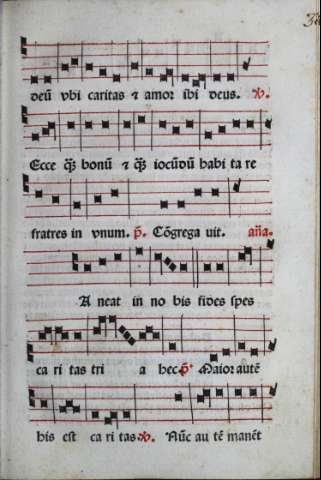 deū vbi caritas ⁊ amor ibi deus. ℣.
Ecce q̄ȝ bonū ⁊ q̄ȝ iocūdū habi ta re
fratres in vnum. p̄. Cōgrega uit. an̄a.
A neat in no bis fides spes
ca ri tas tri a hec p̄ Maior autē
his est ca ri tas ℣. Nūc au tē manēt